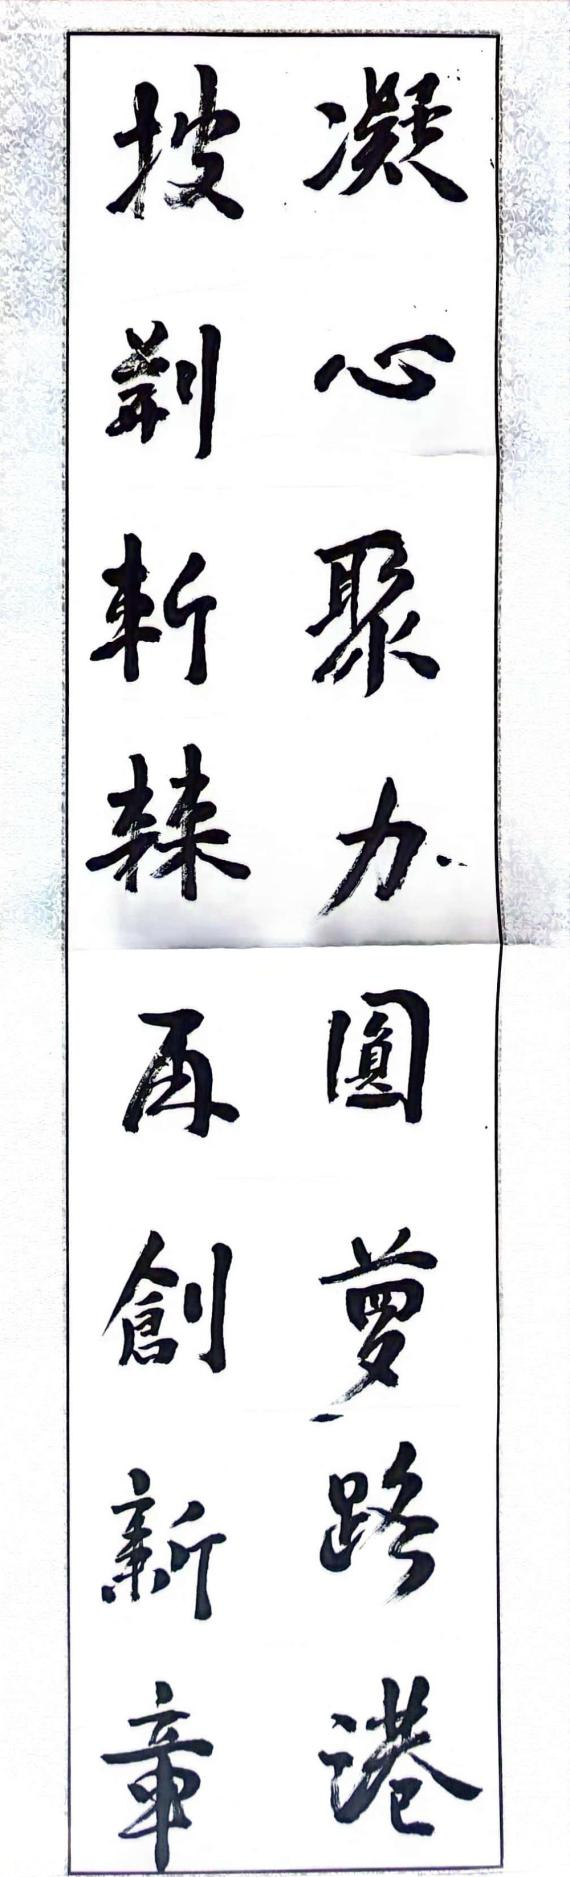 凝心聚力圓夢路港
披荆斬棘再創新章